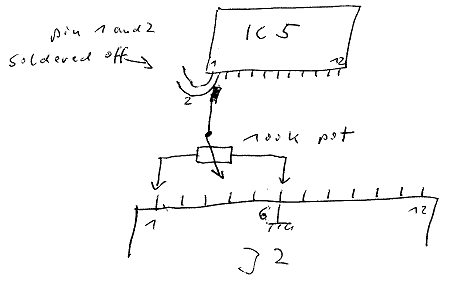 pin 1 and 2
soldered off
IC5
1
12
2
100k pot
1
6
12
J2